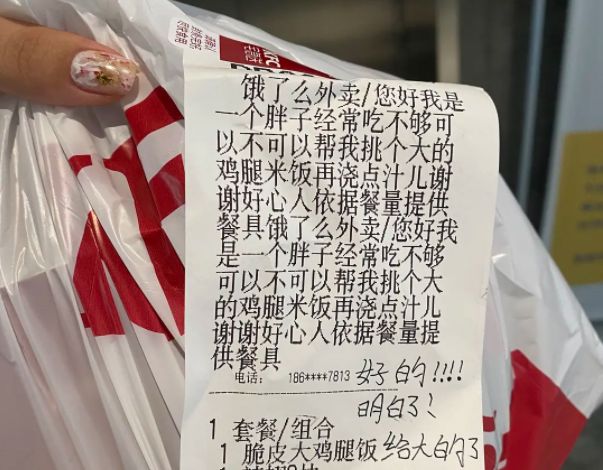 饿了么外卖/您好我是
一个胖子经常吃不够可
以不可以帮我挑个大的
鸡腿米饭再浇点汁儿谢
谢好心人依据餐量提供
餐具饿了么外卖/您好我
是一个胖子经常吃不够
可以不可以帮我挑个大
的鸡腿米饭再浇点汁儿
谢谢好心人依据餐量提
供餐具
电话: 186****7813 好的!!!!
明白了!
1 套餐/组合
1 脆皮大鸡腿饭 给大的了